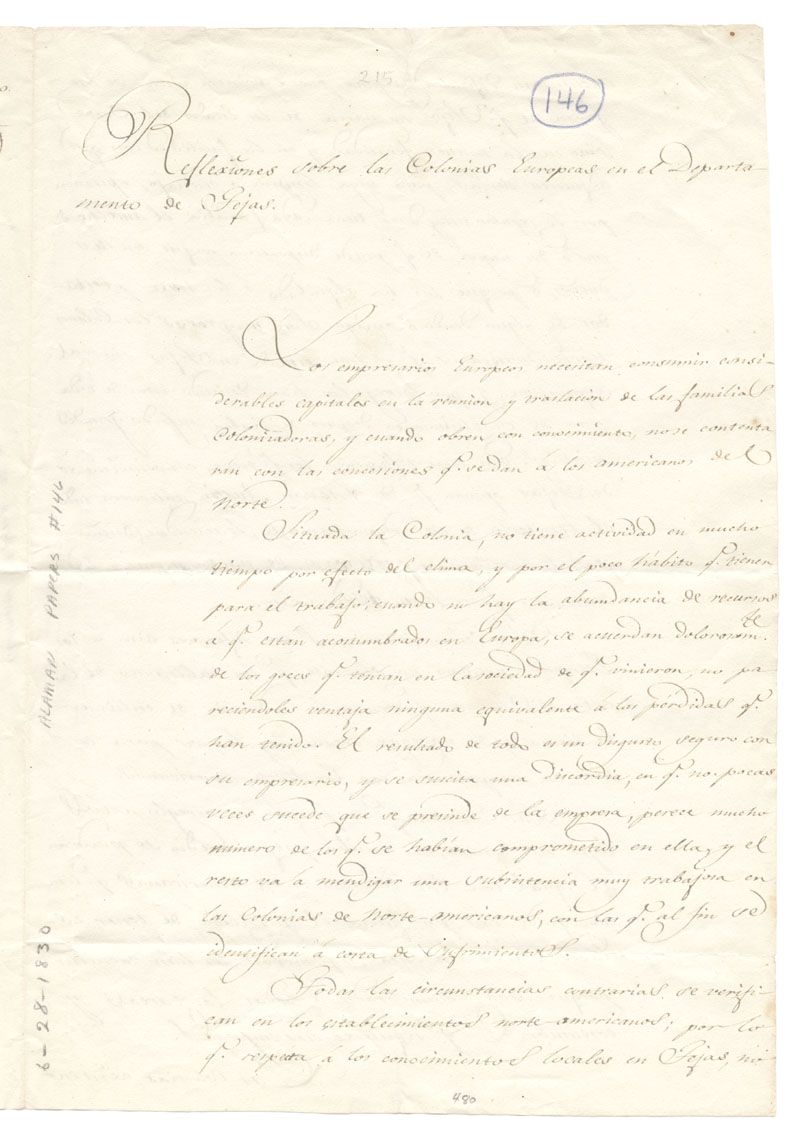 215
146
Reflexiones sobre las Colonias Europeas en el Departa-
mento de Tejas.
Los empresarios Europeos necesitan consumir consi-
derables capitales en la reunion y traslacion de las familias
Colonizadoras, y cuando obren con conocimiento, no se contenta
ran con las concesiones q.e se dan á los americanos del
Norte.
Situada la Colonia, no tiene actividad en mucho
tiempo por efecto del clima, y por el poco hábito q.e tienen
para el trabajo; cuando no hay la abundancia de recursos
á q.e están acostumbrados en Europa, se acuerdan dolorosam.te
de los goces q.e tenían en la sociedad de q.e vinieron, no pa
reciendoles ventaja ninguna equivalente á las pérdidas q.e
han tenido. El resultado de todo es un disgusto seguro con
su empresario, y se suscita una discordia, en q.e no pocas
veces sucede que se presinde de la empresa, perece mucho
numero de los q.e se habían comprometido en ella, y el
resto va á mendigar una subsistencia muy trabajosa en
las Colonias de Norte-americanos, con las q.e al fin se
identifican á costa de sufrimientos.
Todas las circunstancias contrarias se verifi-
can en los establecimientos norte-americanos; por lo
q.e respecta á los conocimientos locales en Tejas, no
480
ALAMAN PAPERS #146
6-28-1830